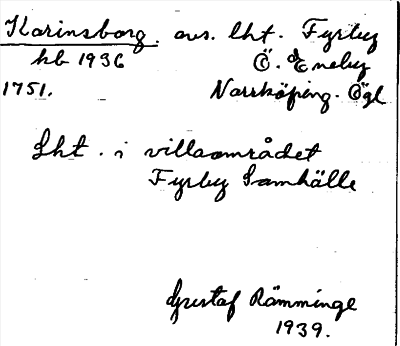 Karinsborg. avs. lht. Fyrby
hb 1936 Ö. Eneby
1751. Norrköping. Ögl
Lht. i villaområdet
Fyrby Samhälle
Gustaf Rämminge
1939.